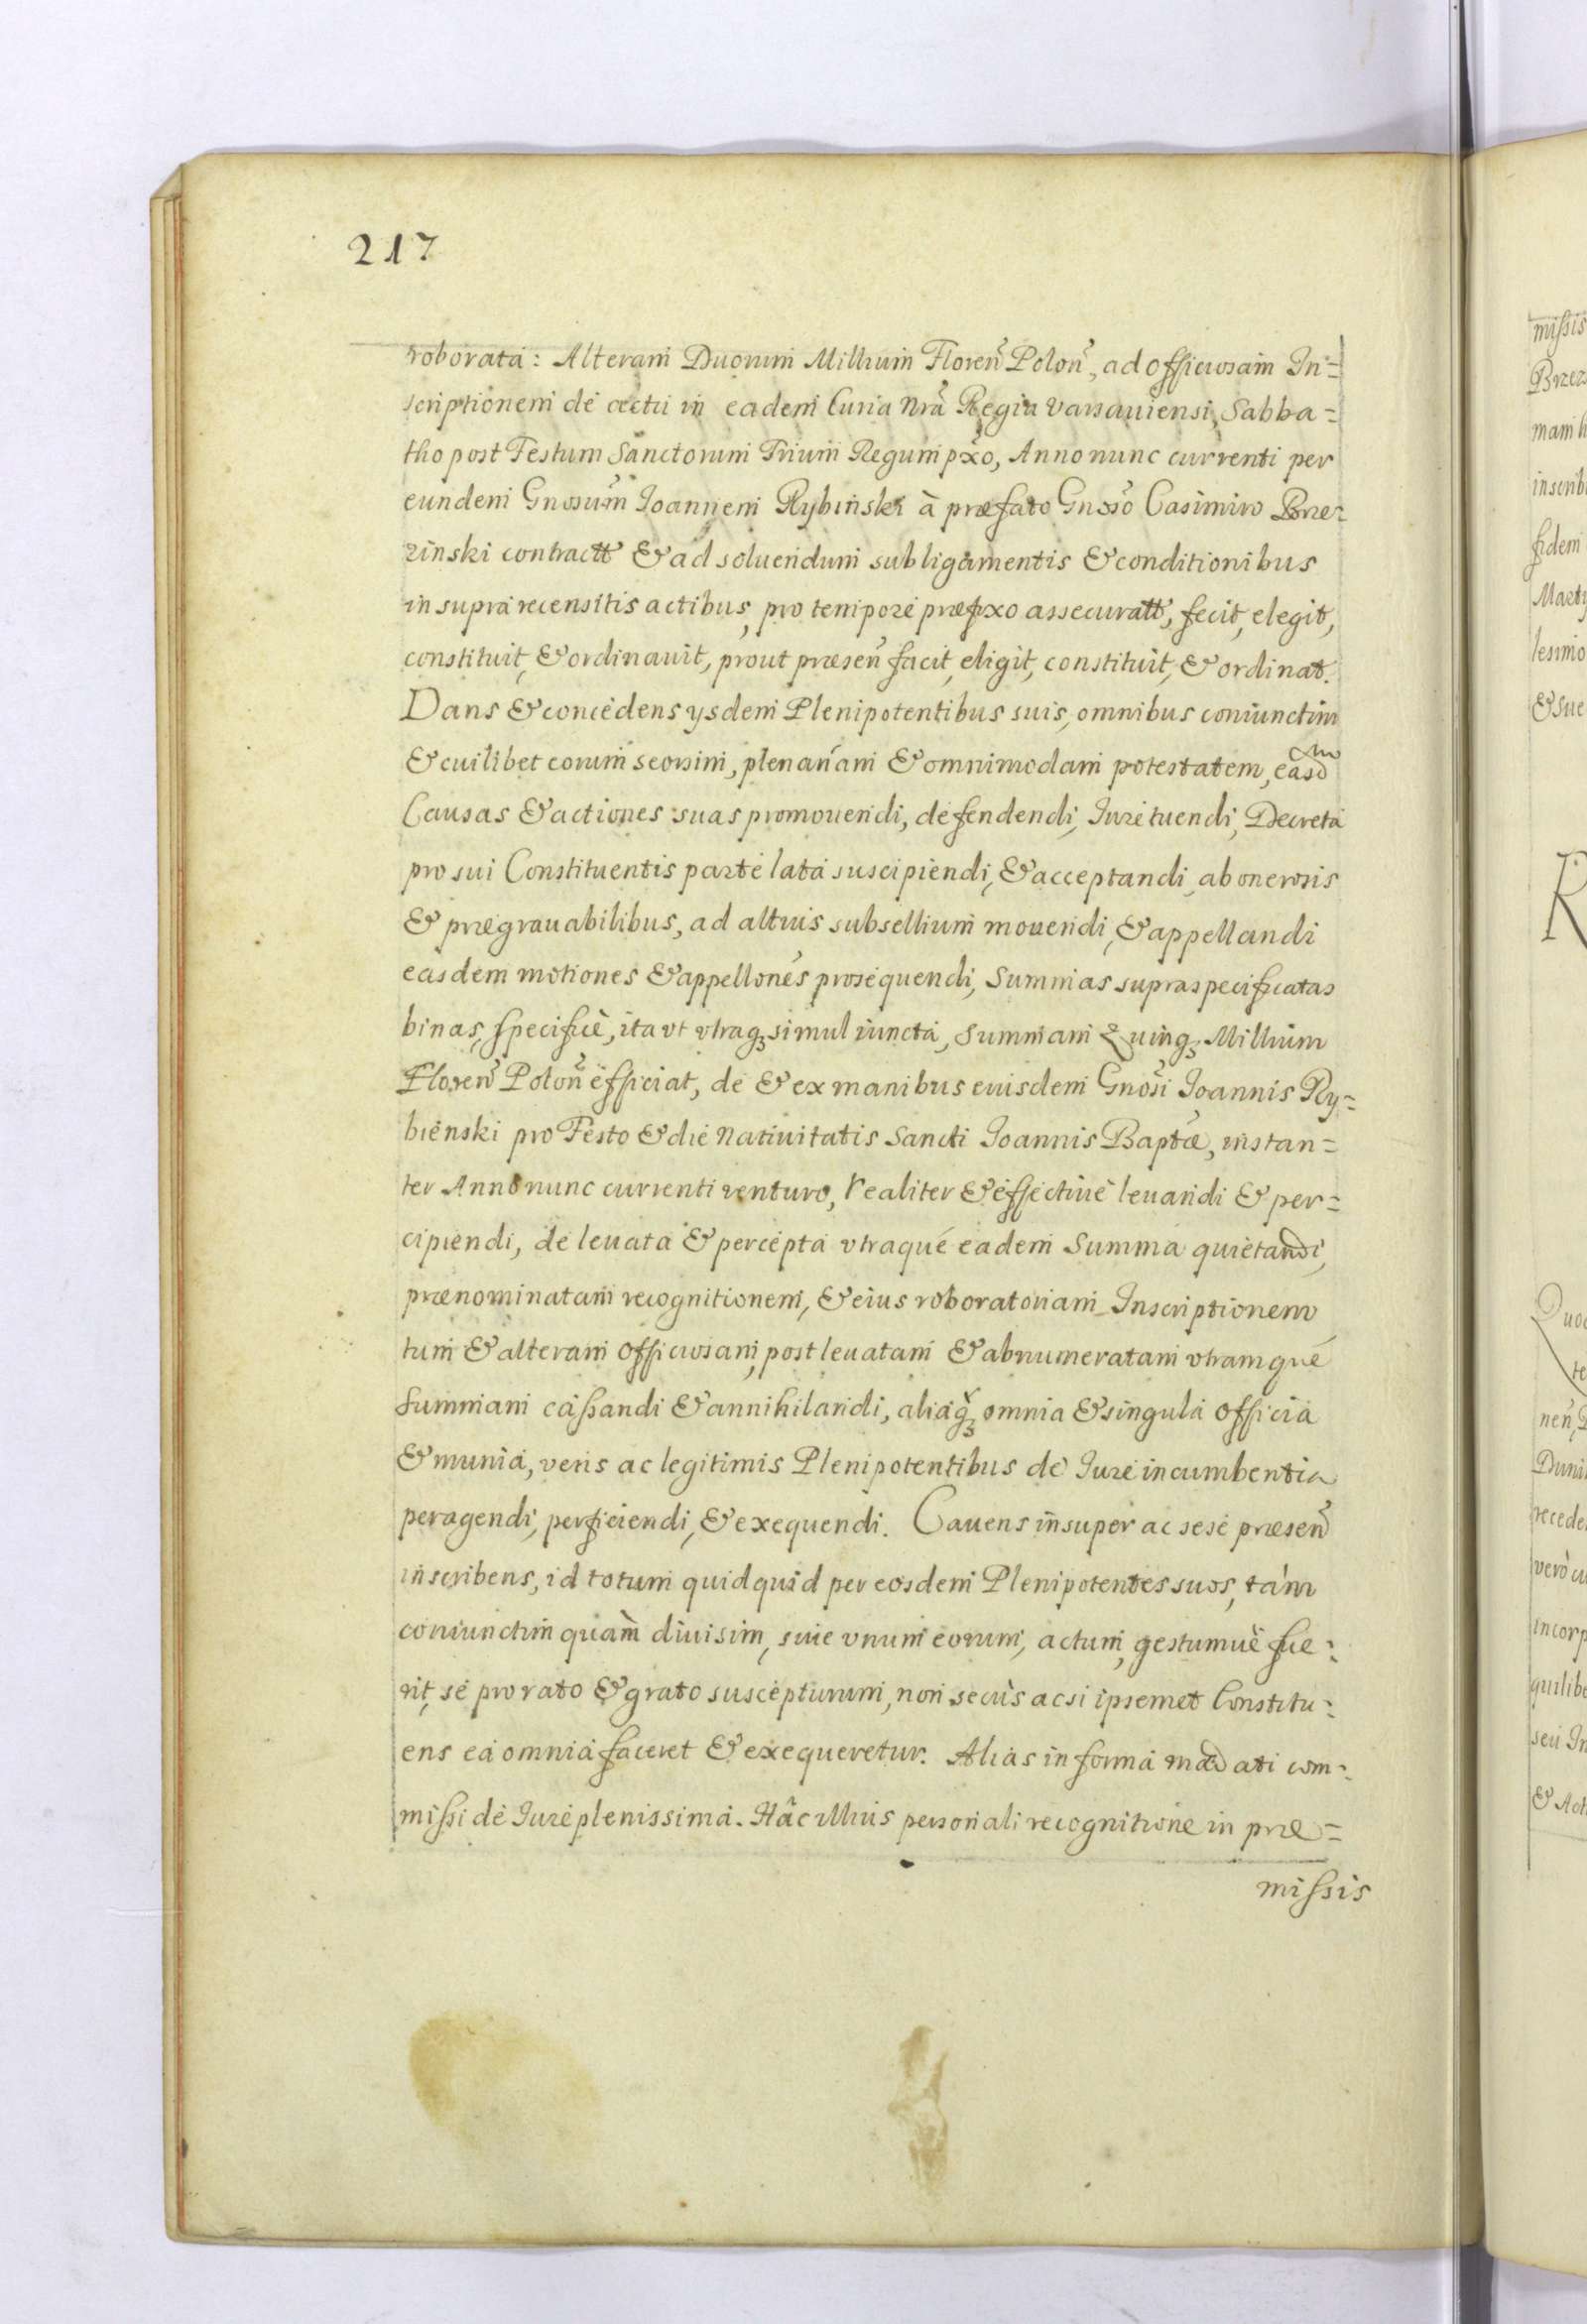 217
roborata: Alteram Duorum Millium Floren Polon, ad officiosam In=
scriptionem de actu in eadem Curia Nra Regia Varsaviensi, Sabba=
tho post Festum Sanctorum Trium Regum pxo, Anno nunc currenti per
eundem Gnosum Joannem Rybinski à præfato Gnoso Casimiro Brze=
zinski contractt & ad soluendum subligamentis & conditionibus
in supra recensitis actibus, pro tempore præfixo assecuratt, fecit, elegit,
constituit, & ordinauit, prout præsen facit, eligit, constituit, & ordinat.
Dans & concedens ysdem Plenipotentibus suis, omnibus coniunctim
& cuilibet eorum seorsim, plenariam & omnimodam potestatem, easd
Causas & actiones suas promouendi, defendendi, Iure tuendi, Decreta
pro sui Constituentis parte lata suscipiendi, & acceptandi, ab onerosis
& prægrauabilibus, ad altius subsellium mouendi, & appellandi
easdem motiones & appellones prosequendi, Summas supraspecificatas
binas, specifice, ita vt vtraq₃ simul iuncta, Summam Quinq₃ Millium
Floren Polon efficiat, de & ex manibus eiusdem Gnosi Joannis Ry=
bienski pro Festo & die Natiuitatis Sancti Joannis Baptæ, instan=
ter Anno nunc currenti venturo, realiter & effectiuè leuandi & per=
cipiendi, de leuata & percepta vtraque eadem Summa quietandi,
prænominatam recognitionem, & eius roboratoriam Inscriptionem
tum & alteram officiosam, post leuatam & abnumeratam vtramque
Summam cassandi & annihilandi, aliaq₃ omnia & singula officia
& munia, veris ac legitimis Plenipotentibus de Iure incumbentia
peragendi, perficiendi, & exequendi. Cauens insuper ac sese præsen
inscribens, id totum quidquid per eosdem Plenipotentes suos, tam
coniunctim quàm diuisim, siue vnum eorum, actum, gestumuè fue=
rit, se pro rato & grato suscepturum, non secus ac si ipsemet Constitu=
ens ea omnia faceret & exequeretur. Alias in forma mandati com=
missi de Iure plenissima. Hâc illius personali recognitione in præ=
missis
missis
mam h
inscrib
fidem
lesimo
& Sue
R
recede
vero cu
incorp
quilibe
seu In
& Act